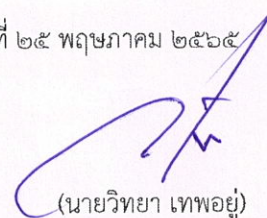 ที่ ๒๕ พฤษภาคม ๒๕๖๕
(นายวิทยา เทพอยู่)